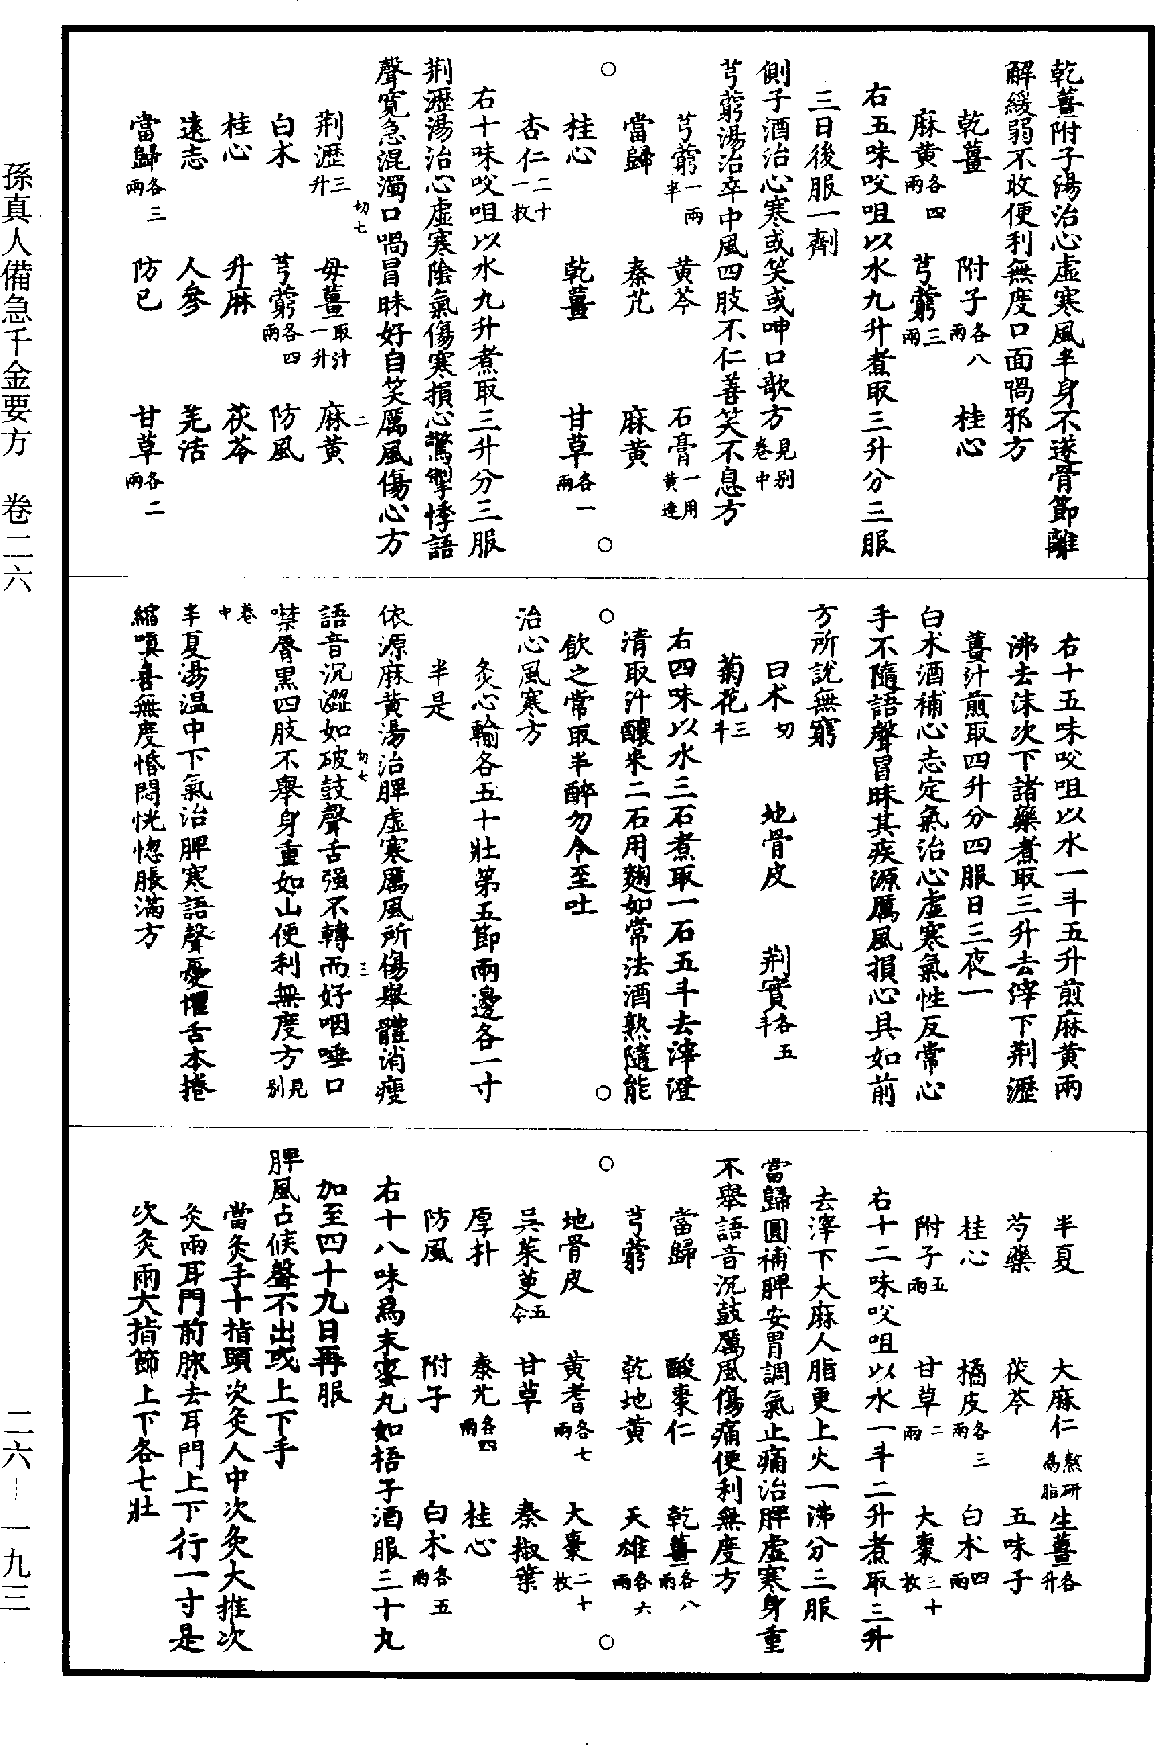 乾薑附子湯治心虛寒風半身不遂骨節離
解緩弱不收便利無度口面喎邪方
乾薑　附子各八兩　桂心
麻黃各四兩　芎藭三兩
右五味㕮咀以水九升煮取三升分三服
三日後服一劑
側子酒治心寒或笑或呻口歌方見別卷中
芎藭湯治卒中風四肢不仁善笑不息方
芎藭一兩半　黃芩　石膏一用黃連
當歸　秦艽　麻黃
桂心　乾薑　甘草各一兩
杏仁二十一枚
右十味㕮咀以水九升煮取三升分三服
荊瀝湯治心虛寒陰氣傷寒損心驚掣悸語
聲寬急混濁口喎冒昧好自笑厲風傷心方
荊瀝三升　母薑切七取汁一升　麻黃
白朮　芎藭各四兩　防風
桂心　升麻　茯苓
遠志　人參　羌活
當歸各三兩　防已　甘草各二兩
右十五味㕮咀以水一斗五升煎麻黃兩
沸去沫次下諸藥煮取三升去滓下荊瀝
薑汁煎取四升分四服日三夜一
白朮酒補心志定氣治心虛寒氣性反常心
手不隨語聲冒昧其疾源厲風損心具如前
方所說無窮
白朮切　地骨皮　荊實各五斗
菊花三斗
右四味以水三石煮取一石五斗去滓澄
清取汁釀米二石用麴如常法酒熟隨能
飲之常取半醉勿令至吐
治心風寒方
灸心輸各五十壯第五節兩邊各一寸
半是
依源麻黃湯治脾虛寒厲風所傷舉體消瘦
語音沉澀如破鼓聲舌强不轉而好咽唾口
噤脣黑四肢不舉身重如山便利無度方見別
卷中
半夏湯溫中下氣治脾寒語聲憂懼舌本捲
縮嗔喜無度惛悶恍惚脹滿方
半夏　大麻仁熬研為脂　生薑各升
芍藥　茯苓　五味子
桂心　橘皮各三兩　白朮四兩
附子五兩　甘草二兩　大棗三十枚
右十二味㕮咀以水一斗二升煮取三升
去滓下大麻人脂更上火一沸分三服
當歸圓補脾安胃調氣止痛治脾虛寒身重
不舉語音沉鼓厲風傷痛便利無度方
當歸　酸棗仁　乾薑各八兩
芎藭　乾地黃　天雄各六兩
地骨皮　黃耆各七兩　大棗二十枚
吳茱萸五合　甘草　秦椒葉
厚朴　秦艽各四兩　桂心
防風　附子　白朮各五兩
右十八味為末蜜丸如梧子酒服三十丸
加至四十九日再服
脾風占候聲不出或上下手
當灸手十指頭次灸人中次灸大推次
灸兩耳門前脉去耳門上下行一寸是
次灸兩大指節上下各七壯
孫真人備急千金要方　卷二六
二六－一九三